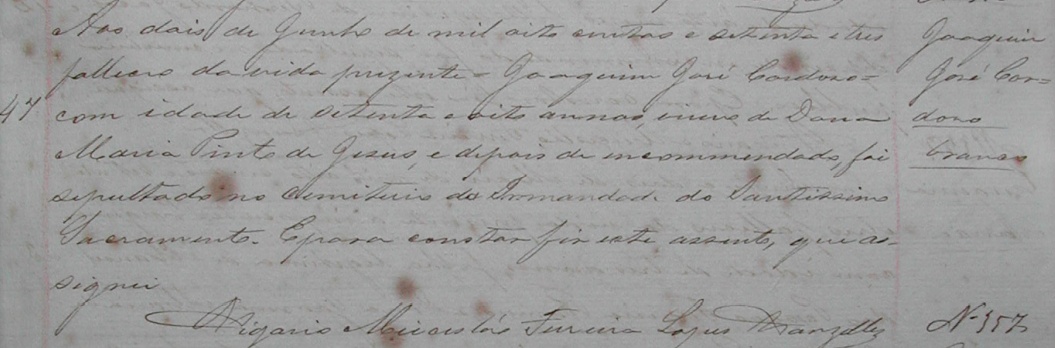 Aos dois de Junho de mil oito centos e setenta e tres
falleceo da vida prezente = Joaquim José Cardozo =
com idade de setenta e oito annos, viuvo de Dona
Maria Pinto de Jesus, e depois de incommendado, foi
sepultado no Cemiterio da Irmandade do Santissimo
Sacramento. E para constar fiz este assento, que as-
signei
Vigario Ferreira Lopes
47
Joaquim
José Car=
dozo
branco
N. 357